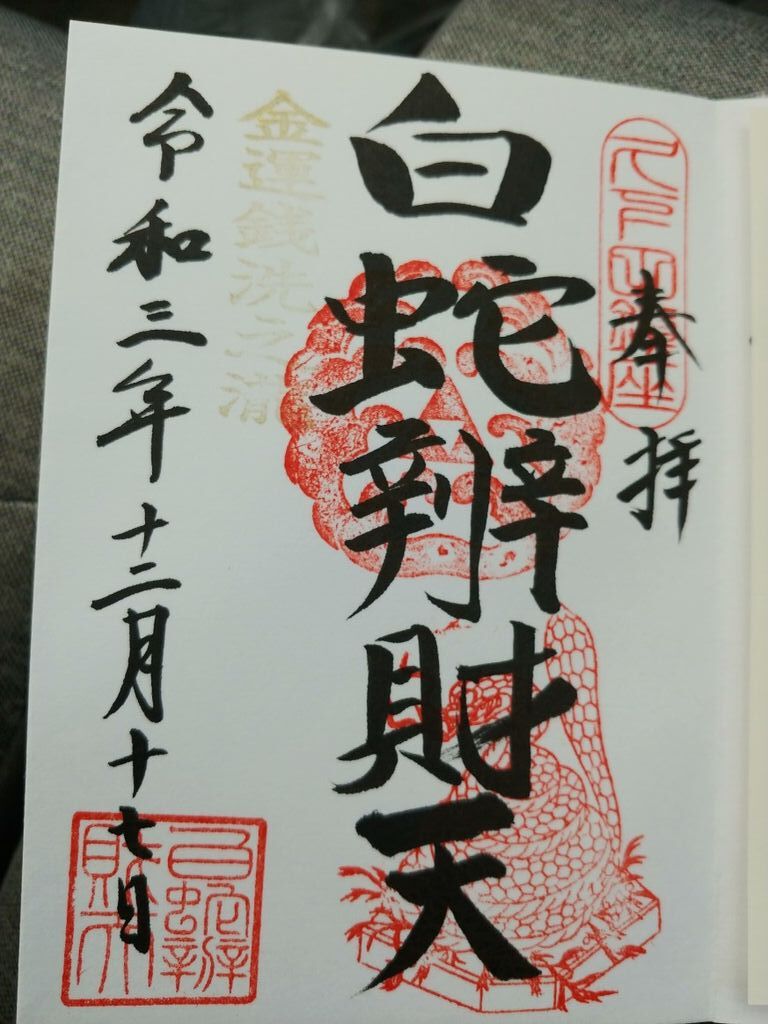 奉拝
久下田鎮座
白蛇辨財天
金運銭洗之瀧
令和三年十二月十七日
白蛇辨
財天